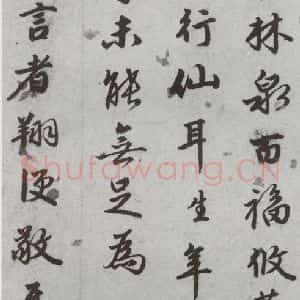 林泉而福攸
行仙耳生年
未能無足為
言者翔便敬
Shufawang.CN